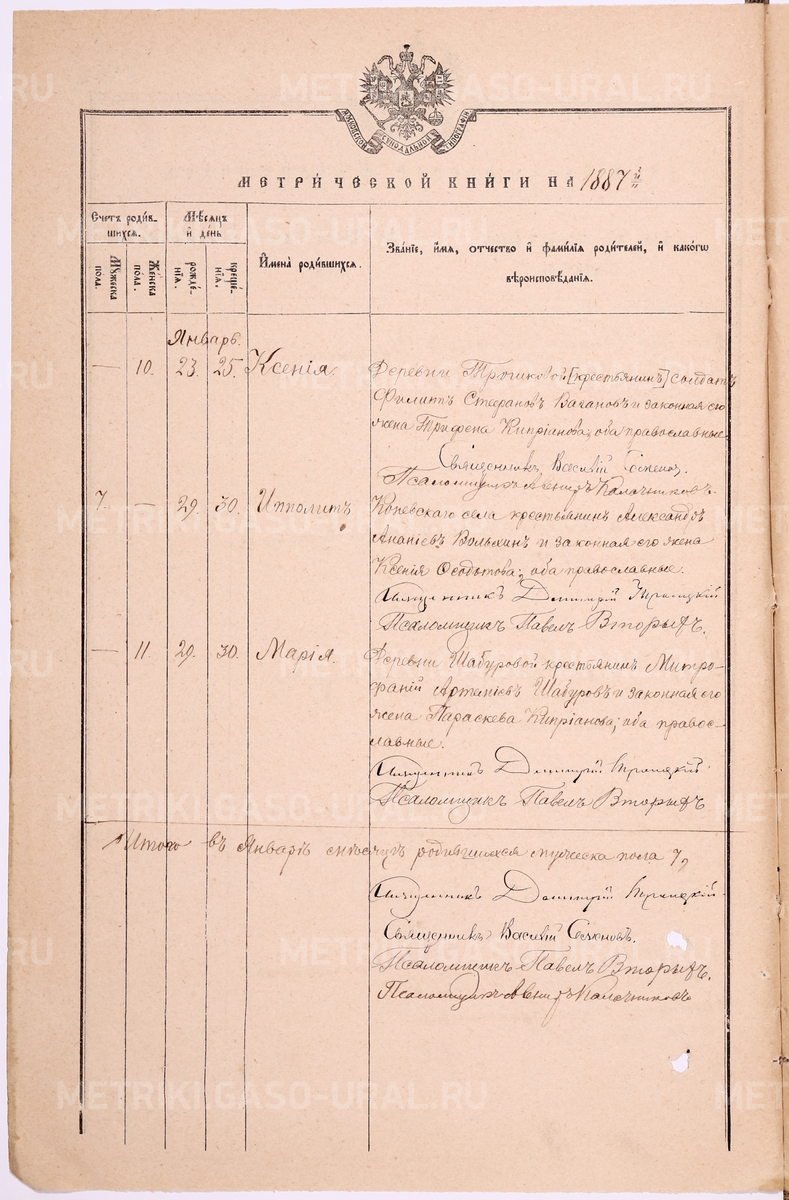 МОСКОВСКОЙ СУНОДАЛЬНОЙ ТИПОГРАФІИ
МЕТРИ́ЧЕСКОЙ КНИ́ГИ НА 1887 й
Счетъ роди́вшихся.
Мѣсяцъ и день
Имена̀ роди́вшихся.
Зва́нїе, и́мя, отчество и фами́лїя роди́телей, и како́гѡ вѣроисповѣ́данїя.
Мꙋ́жеска по́ла.
Же́нска по́ла.
рожде́нїѧ.
креще́нїѧ.
Январь.
— 10. 23. 25. Ксенія. Деревни [крестьянинъ] солдатъ
Филипъ Стефановъ Вагановъ и законная его
жена Трифена Кипріанова; оба православные.
Священникъ Василій
Псаломщикъ Калачниковъ.
7. — 29. 30. Ипполитъ Коневскаго села крестьянинъ Александръ
Ананіевъ Вольхинъ и законная его жена
Ксенія Ѳеодотова; оба православные.
Священникъ Димитрій Троицкій
Псаломщикъ Павелъ Вторыхъ.
— 11. 29. 30. Марія. Деревни Шабуровой крестьянинъ Митро-
фаній Артеміевъ Шабуровъ и законная его
жена Параскева Кипріанова; оба право-
славные.
Священникъ Димитрій Троицкій
Псаломщикъ Павелъ Вторыхъ
Итого въ Январѣ мѣсяцѣ родившихся мужеска пола 7,
Священникъ Димитрій Троицкій
Священникъ Василій
Псаломщикъ Павелъ Вторыхъ.
Псаломщикъ Калачниковъ
METRIKI.GASO-URAL.RU